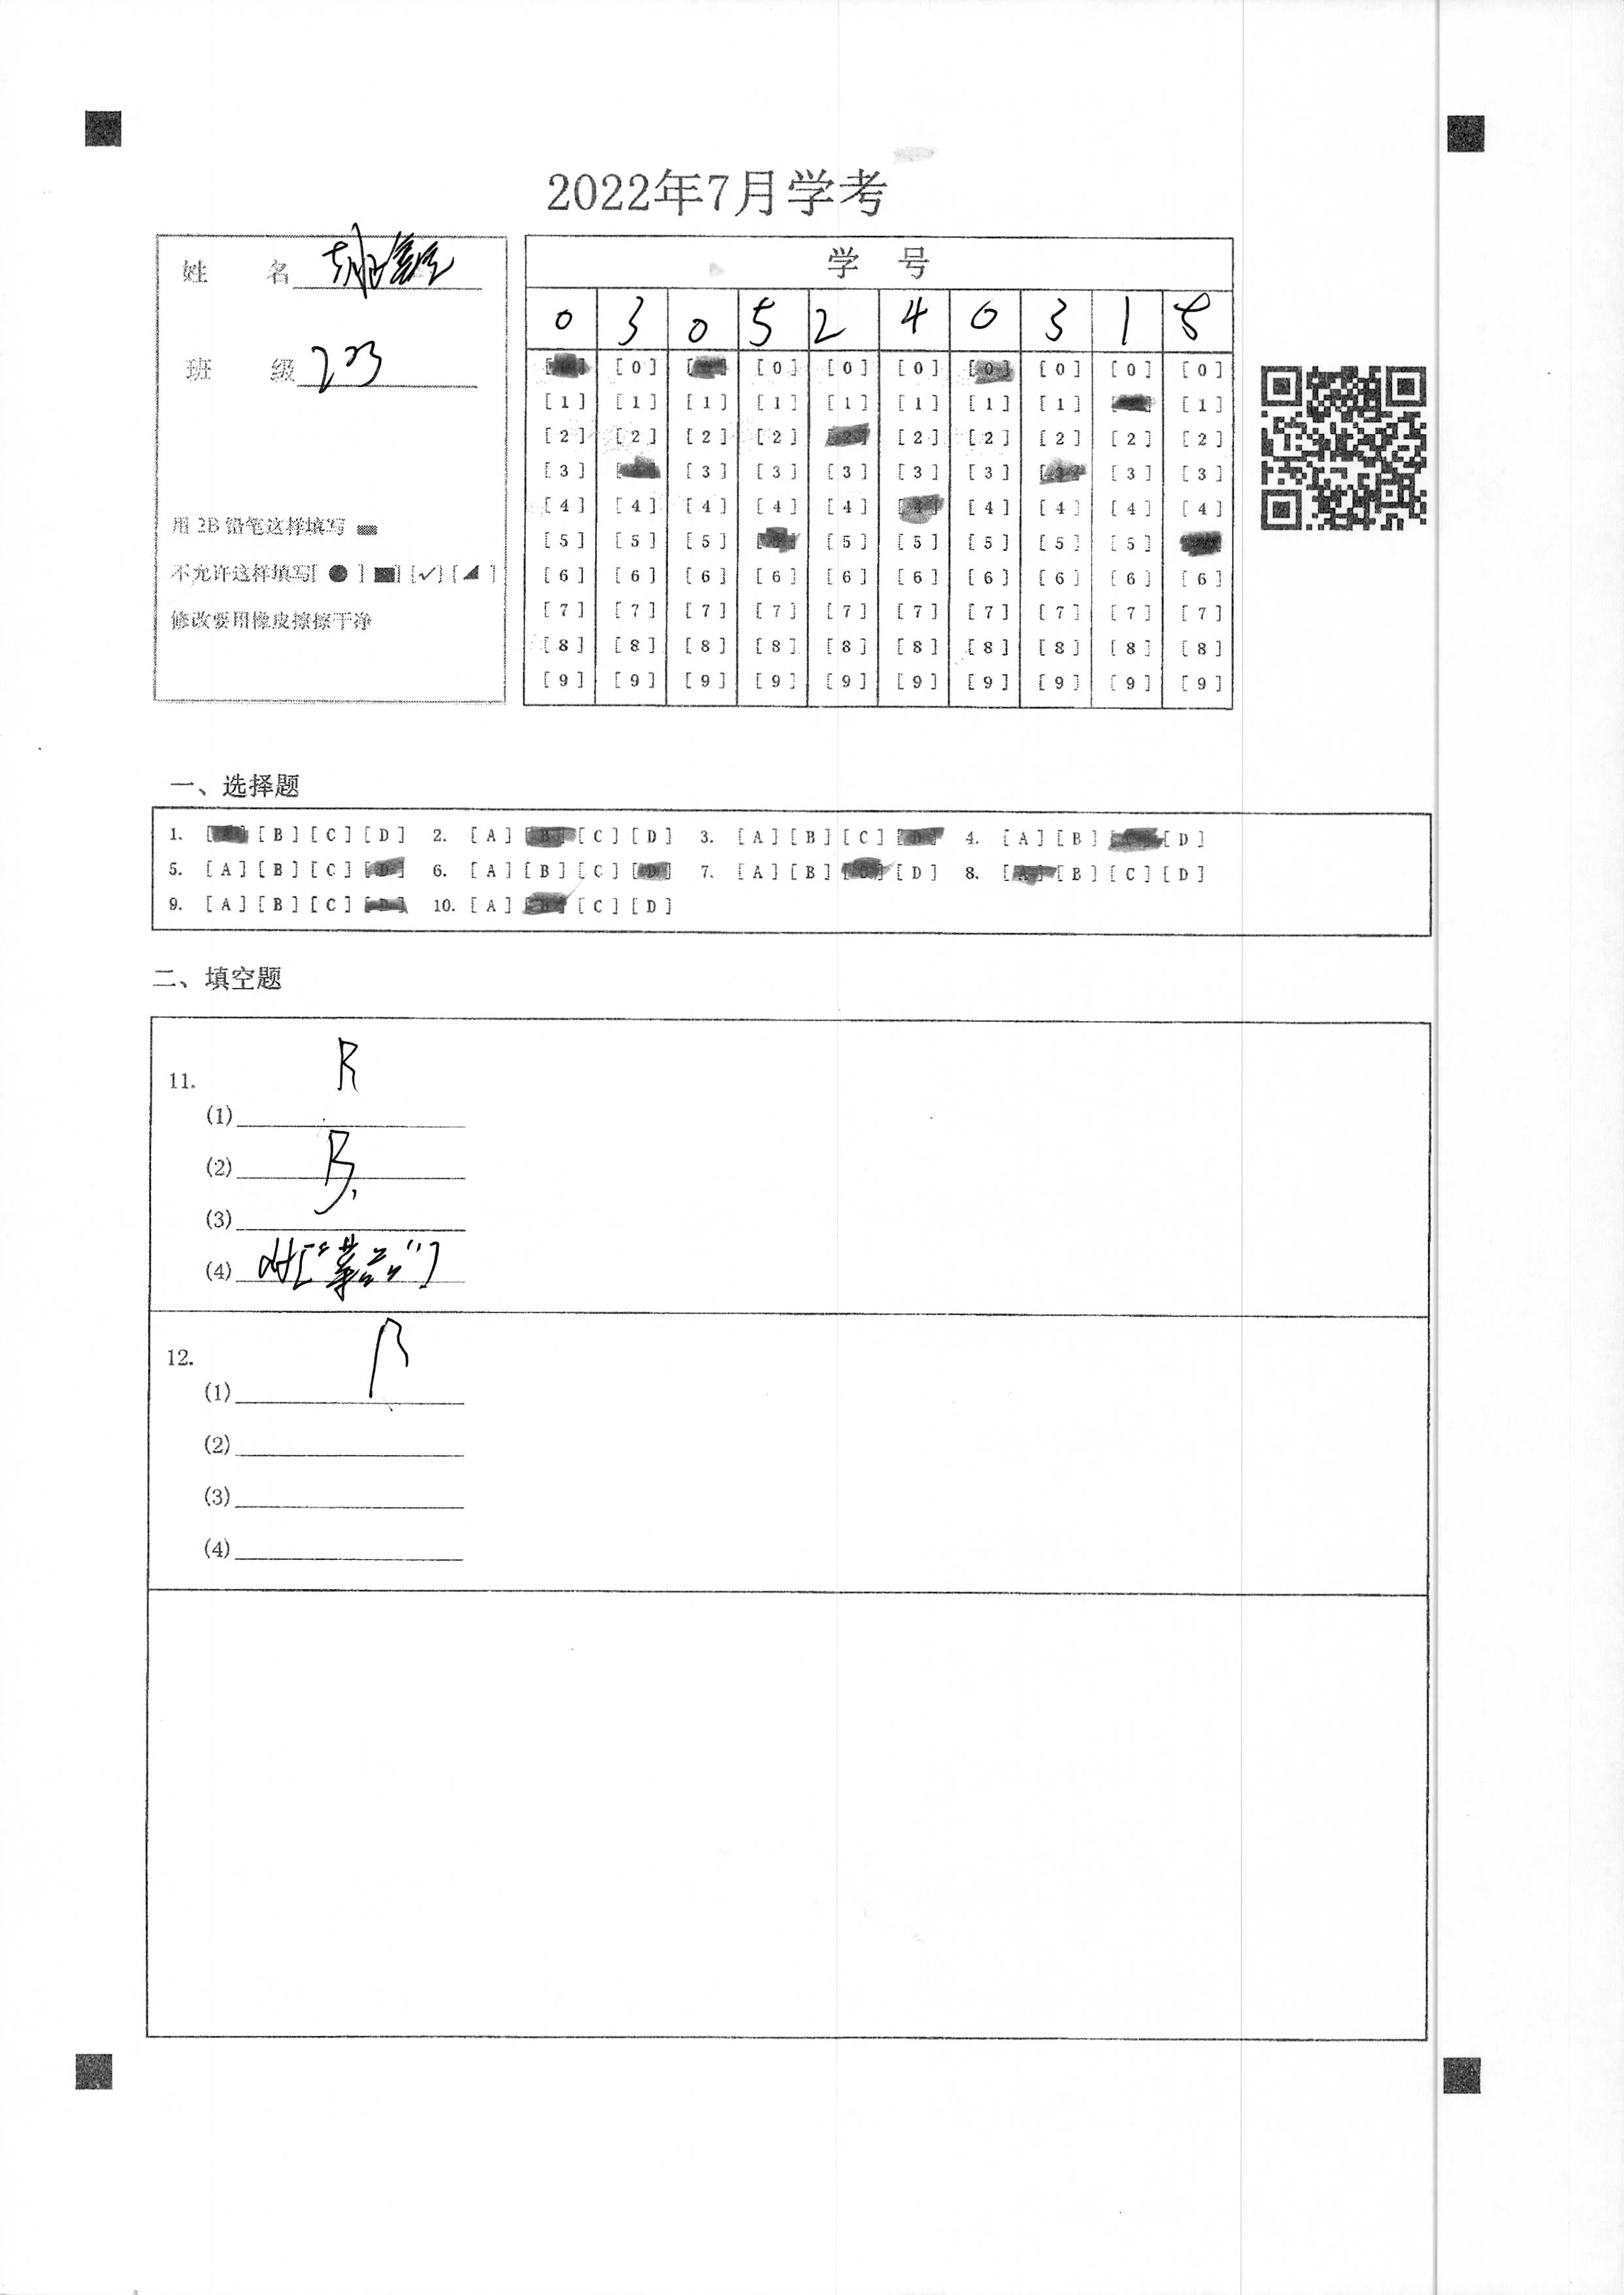 2022年7月学考
姓 名
班 级 223
用 2B 铅笔这样填写
不允许这样填写[ ● ] [■] [✓] [◢ ]
修改要用橡皮擦擦干净
学 号
0 3 0 5 2 4 0 3 1
[0] [0] [0] [0] [0] [0] [0]
[1] [1] [1] [1] [1] [1] [1] [1] [1]
[2] [2] [2] [2] [2] [2] [2] [2] [2] [2]
[3] [3] [3] [3] [3] [3] [3] [3]
[4] [4] [4] [4] [4] [4] [4] [4] [4] [4]
[5] [5] [5] [5] [5] [5] [5] [5]
[6] [6] [6] [6] [6] [6] [6] [6] [6] [6]
[7] [7] [7] [7] [7] [7] [7] [7] [7] [7]
[8] [8] [8] [8] [8] [8] [8] [8] [8] [8]
[9] [9] [9] [9] [9] [9] [9] [9] [9] [9]
一、选择题
1. [A] [B] [C] [D] 2. [A] [B] [C] [D] 3. [A] [B] [C] [D] 4. [A] [B] [C] [D]
5. [A] [B] [C] [D] 6. [A] [B] [C] [D] 7. [A] [B] [C] [D] 8. [A] [B] [C] [D]
9. [A] [B] [C] [D] 10. [A] [B] [C] [D]
二、填空题
11.
R
(1)
(2) B
(3)
(4)
12.
(1)
(2)
(3)
(4)